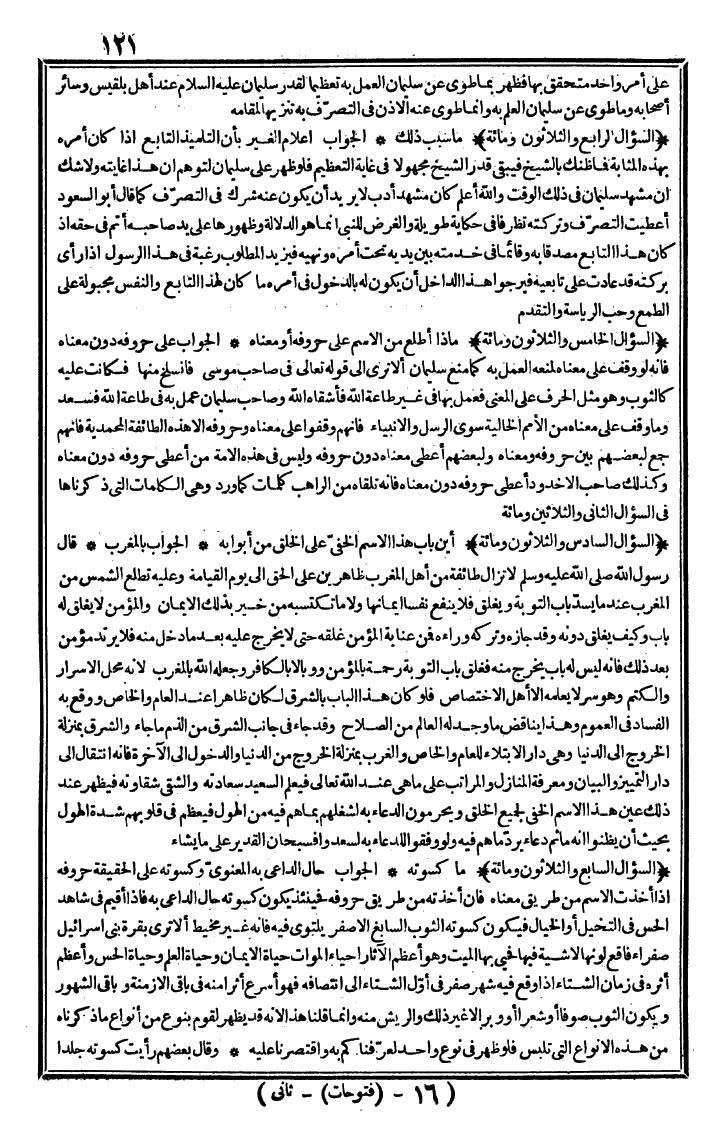 ١٢١
على أمر واحد متحقق بها فظهر بما طوى عن سليمان العمل به تعظيما لقدر سليمان عليه السلام عند أهل بلقيس وسائر
أصحابه وما طوى عن سليمان العلم به وانما طوى عنه الاذن فى التصرّف به تنزيها لمقامه
﴿السؤال الرابع والثلاثون ومائة﴾ ما سبب ذلك * الجواب اعلام الغير بأن التلميذ التابع اذا كان أمره
بهذه المثابة فما ظنك بالشيخ فيبقى قدر الشيخ مجهولا فى غاية التعظيم فلو ظهر على سليمان لتوهم ان هذا غايته ولا شك
ان مشهد سليمان فى ذلك الوقت والله أعلم كان مشهد أدب لا يريد أن يكون عنه شرك فى التصرّف كما قال أبو السعود
أعطيت التصرّف وتركته تظرفا فى حكاية طويلة والغرض للنبى انما هو الدلالة وظهورها على يد صاحبه أتم فى حقه اذ
كان هذا التابع مصدقا به وقائما فى خدمته بين يديه تحت أمره ونهيه فيزيد المطلوب رغبة فى هذا الرسول اذا رأى
بركته قد عادت على تابعيه فيرجو هذا الداخل أن يكون له بالدخول فى أمره ما كان لهذا التابع والنفس مجبولة على
الطمع وحب الرياسة والتقدم
﴿السؤال الخامس والثلاثون ومائة﴾ ماذا أطلع من الاسم على حروفه أو معناه * الجواب على حروفه دون معناه
فانه لو وقف على معناه لمنعه العمل به كما منع سليمان ألا ترى الى قوله تعالى فى صاحب موسى فانسلخ منها فكانت عليه
كالثوب وهو مثل الحرف على المعنى فعمل بها فى غير طاعة الله فأشقاه الله وصاحب سليمان عمل به فى طاعة الله فسعد
وما وقف على معناه من الأمم الخالية سوى الرسل والانبياء فانهم وقفوا على معناه وحروفه الا هذه الطائفة المحمدية فانهم
جمع لبعضهم بين حروفه ومعناه ولبعضهم أعطى معناه دون حروفه وليس فى هذه الامة من أعطى حروفه دون معناه
وكذلك صاحب الاخدود أعطى حروفه دون معناه فانه تلقاه من الراهب كلمات كما ورد وهى الكلمات التى ذكرناها
فى السؤال الثانى والثلاثين ومائة
﴿السؤال السادس والثلاثون ومائة﴾ أين باب هذا الاسم الخفىّ على الخلق من أبوابه * الجواب بالمغرب * قال
رسول الله صلى الله عليه وسلم لا تزال طائفة من أهل المغرب ظاهرين على الحق الى يوم القيامة وعليه تطلع الشمس من
المغرب عند ما يسدّ باب التوبة ويغلق فلا ينفع نفسا ايمانها ولا ما تكتسبه من خير بذلك الايمان والمؤمن لا يغلق له
باب وكيف يغلق دونه وقد جازه وتركه وراءه فمن عناية المؤمن غلقه حتى لا يخرج عليه بعد ما دخل منه فلا يرتد مؤمن
بعد ذلك فانه ليس له باب يخرج منه فغلق باب التوبة رحمة بالمؤمن ووبالا بالكافر وجعله الله بالمغرب لانه محل الاسرار
والكتم وهو سر لا يعلمه الا أهل الاختصاص فلو كان هذا الباب بالشرق لكان ظاهرا عند العام والخاص ووقع به
الفساد فى العموم وهذا يناقض ما وجد له العالم من الصلاح وقد جاء فى جانب الشرق من الذم ما جاء والشرق بمنزلة
الخروج الى الدنيا وهى دار الابتلاء للعام والخاص والغرب بمنزلة الخروج من الدنيا والدخول الى الآخرة فانه انتقال الى
دار التمييز والبيان ومعرفة المنازل والمراتب على ما هى عند الله تعالى فيعلم السعيد سعادته والشقى شقاوته فيظهر عند
ذلك عين هذا الاسم الخفى لجميع الخلق ويحرمون الدعاء به لشغلهم بما هم فيه من الهول فيعظم فى قلوبهم شدة الهول
بحيث أن يظنوا انه ما ثم دعاء يردّ ما هم فيه ولو وفقوا للدعاء به لسعدوا فسبحان القدير على ما يشاء
﴿السؤال السابع والثلاثون ومائة﴾ ما كسوته * الجواب حال الداعى به المعنوىّ وكسوته على الحقيقة حروفه
اذا أخذت الاسم من طريق معناه فان أخذته من طريق حروفه فحينئذ يكون كسوته حال الداعى به فاذا أقيم فى شاهد
الحس فى التخيل أو الخيال فيكون كسوته الثوب السابغ الاصفر يلتوى فيه فانه غير مخيط ألا ترى بقرة بنى اسرائيل
صفراء فاقع لونها لا شية فيها فحيى بها الميت وهو أعظم الآثار احياء الموات حياة الايمان وحياة العلم وحياة الحس وأعظم
أثره فى زمان الشتاء اذا وقع فيه شهر صفر فى أوّل الشتاء الى انتصافه فهو أسرع أثرا منه فى باقى الازمنة وباقى الشهور
ويكون الثوب صوفا أو شعرا أو وبرا لا غير ذلك والريش منه وانما قلنا هذا لانه قد يظهر لقوم بنوع من أنواع ما ذكرناه
من هذه الانواع التى تلبس فلو ظهر فى نوع واحد لعرّفناكم به واقتصرنا عليه * وقال بعضهم رأيت كسوته جلدا
(١٦ - (فتوحات) - ثانى)